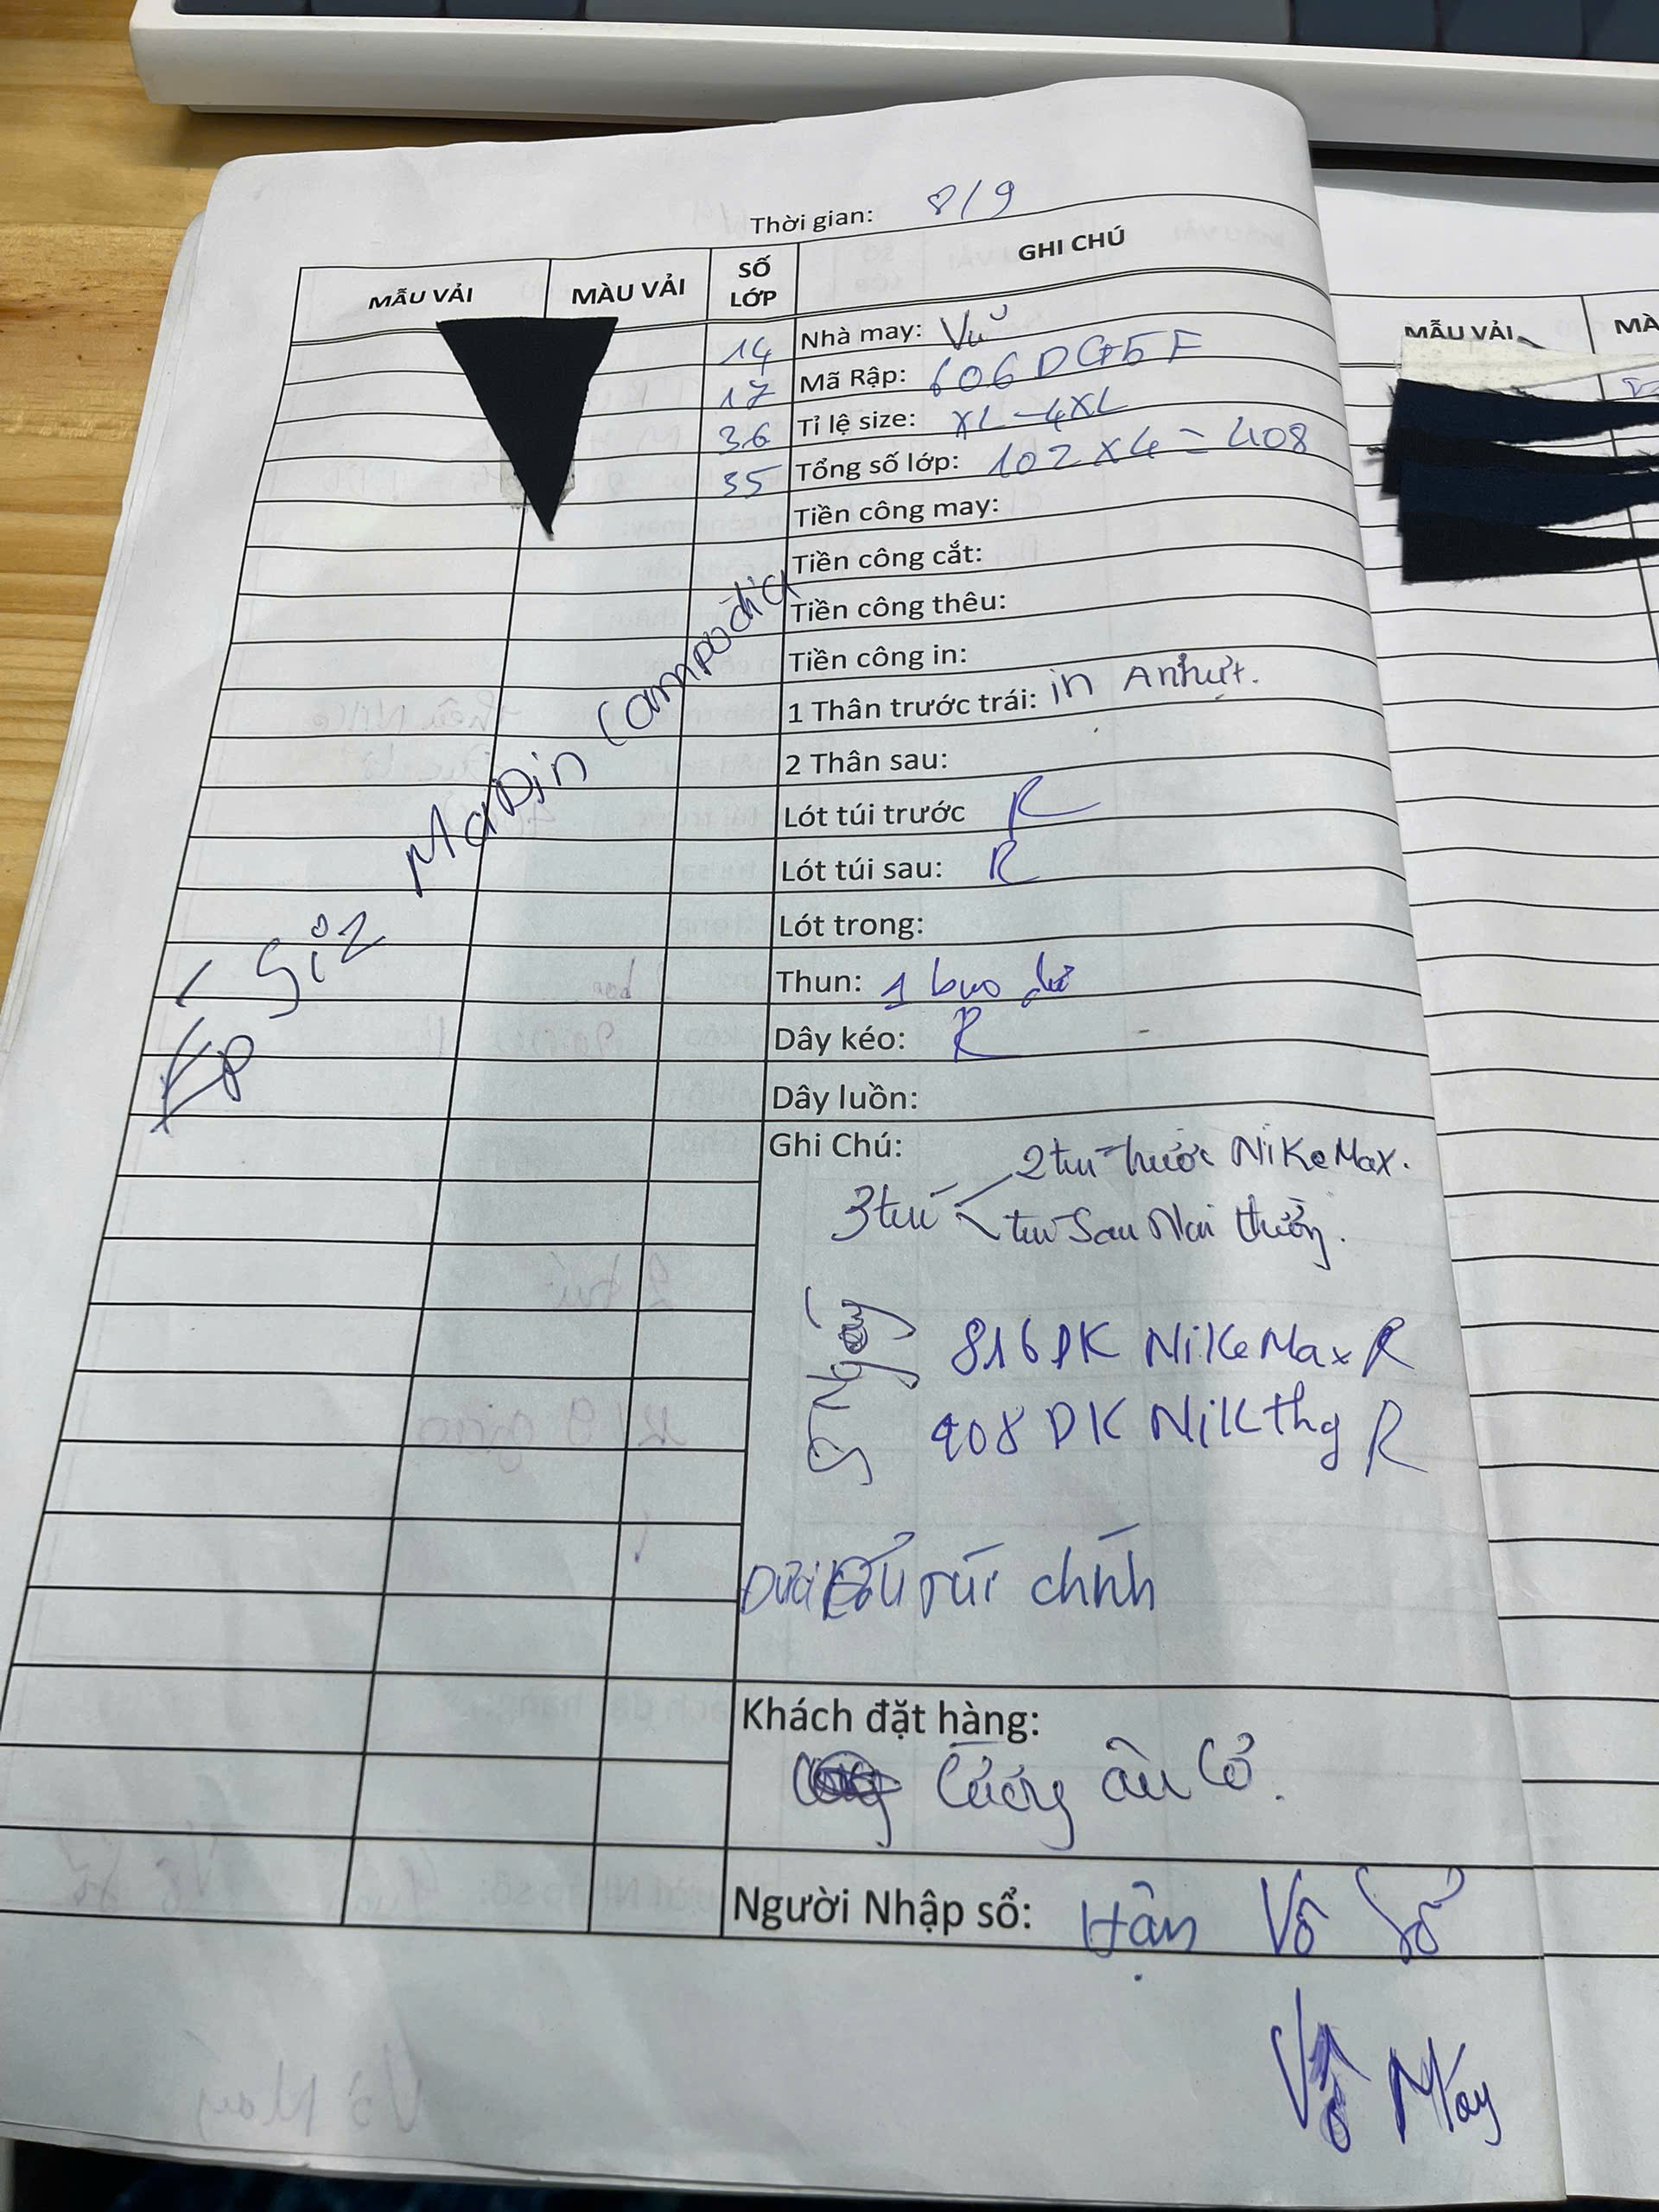 Thời gian: 8/9
MẪU VẢI MÀU VẢI SỐ LỚP GHI CHÚ
14 Nhà may: Vũ
17 Mã Rập: 606DG5F
36 Tỉ lệ size: XL-4XL
35 Tổng số lớp: 102x4=408
Tiền công may:
Tiền công cắt:
Tiền công thêu:
Tiền công in:
1 Thân trước trái: in Anhựt.
2 Thân sau:
Lót túi trước R
Lót túi sau: R
Lót trong:
Thun: 1 bao
Dây kéo: R
Dây luồn:
Size MaDin Campodia
Ghi Chú:
3 túi
2 túi trước NiKeMax.
túi Sau Nai thường.
816 DK NiKeMax R
408 DK NiKthg R
túi chính
Khách đặt hàng:
âu Cơ.
Người Nhập sổ: Hân Vô Sổ
Vô May
MẪU VẢI